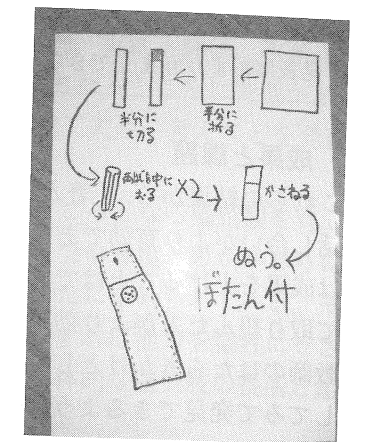 半分に
折る
半分に
切る
中に
おる
×2
かさねる
ぬう。
ぼたん付